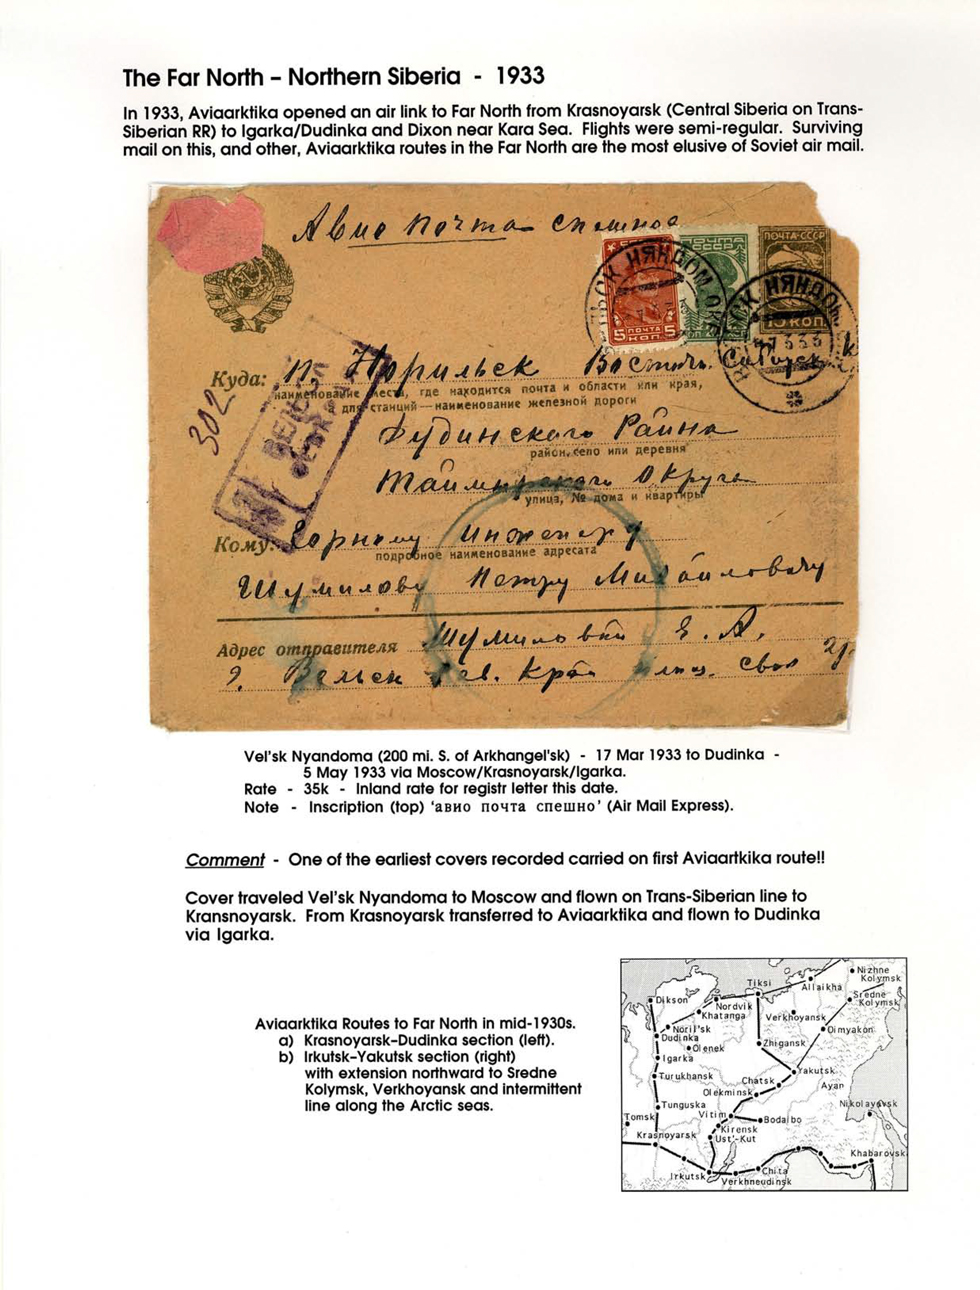 The Far North – Northern Siberia - 1933
In 1933, Aviaarktika opened an air link to Far North from Krasnoyarsk (Central Siberia on Trans-
Siberian RR) to Igarka/Dudinka and Dixon near Kara Sea. Flights were semi-regular. Surviving
mail on this, and other, Aviaarktika routes in the Far North are the most elusive of Soviet air mail.
Авио почта спешноа
ПОЧТА СССР
5 ПОЧТА 5
КОП.
15 КОП.
НЯНДОМ
Куда: п. Норильск Восточн. Сибирск. К
наименование места, где находится почта и области или края,
а для станций — наименование железной дороги
302
Дудинского Района
район, село или деревня
Таймырского Округа
улица, № дома и квартиры
Кому: Горному Инженеру
подробное наименование адресата
Шумилову Петру Михайловичу
Адрес отправителя Шумиловой Е. А.
г. Вельск Сев. Край
Vel'sk Nyandoma (200 mi. S. of Arkhangel'sk) - 17 Mar 1933 to Dudinka -
5 May 1933 via Moscow/Krasnoyarsk/Igarka.
Rate - 35k - Inland rate for registr letter this date.
Note - Inscription (top) 'авио почта спешно' (Air Mail Express).
Comment - One of the earliest covers recorded carried on first Aviaartkika route!!
Cover traveled Vel'sk Nyandoma to Moscow and flown on Trans-Siberian line to
Kransnoyarsk. From Krasnoyarsk transferred to Aviaarktika and flown to Dudinka
via Igarka.
Aviaarktika Routes to Far North in mid-1930s.
a) Krasnoyarsk–Dudinka section (left).
b) Irkutsk–Yakutsk section (right)
with extension northward to Sredne
Kolymsk, Verkhoyansk and intermittent
line along the Arctic seas.
Nizhne
Kolymsk
Tiksi
Allaikha
Dikson
Nordvik
Sredne
Kolymsk
Khatanga
Verkhoyansk
Noril'sk
Oimyakon
Dudinka
Olenek
Zhigansk
Igarka
Turukhansk
Chatsk
Yakutsk
Olekminsk
Ayan
Tunguska
Nikolayevsk
Tomsk
Vitim
Bodaibo
Kirensk
Krasnoyarsk
Ust'-Kut
Khabarovsk
Irkutsk
Chita
Verkhneudinsk